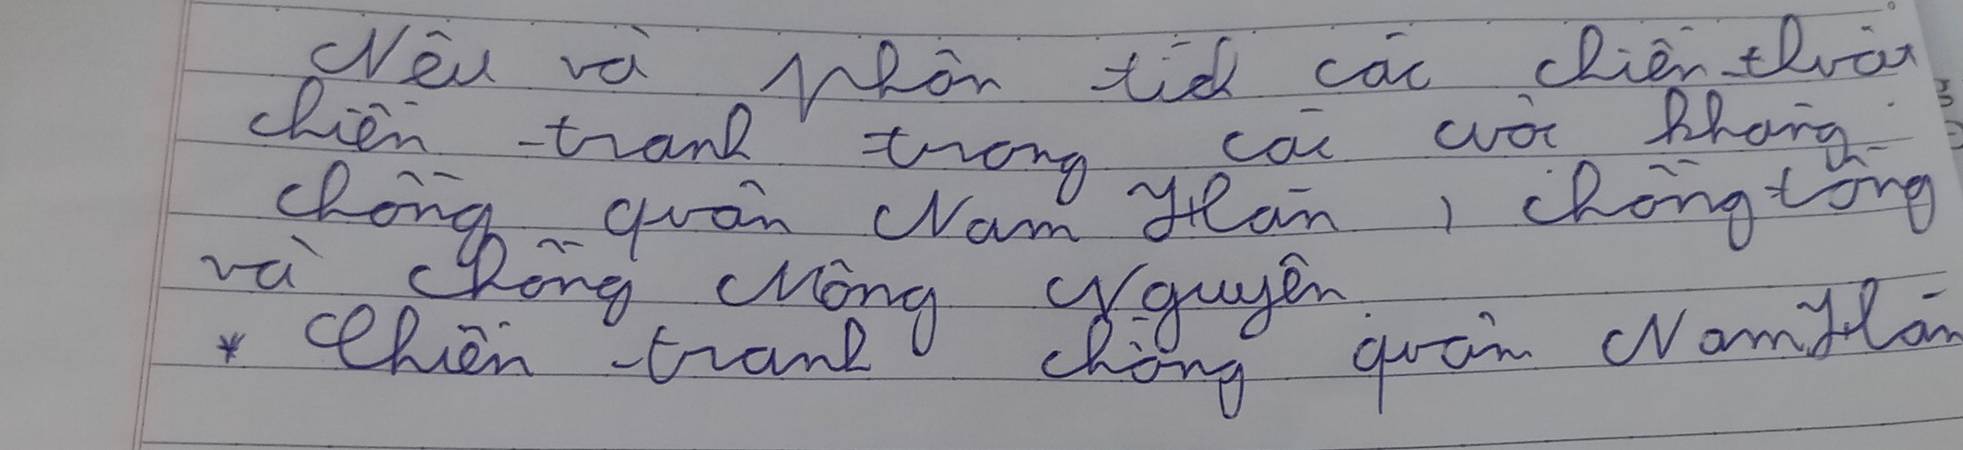 Nêu và phân tích các chiến thuật
chiến tranh trong các cuộc kháng
chống quân Nam Hán, chống tống
và chống Mông Nguyên
* Chiến tranh chống quân Nam Hán